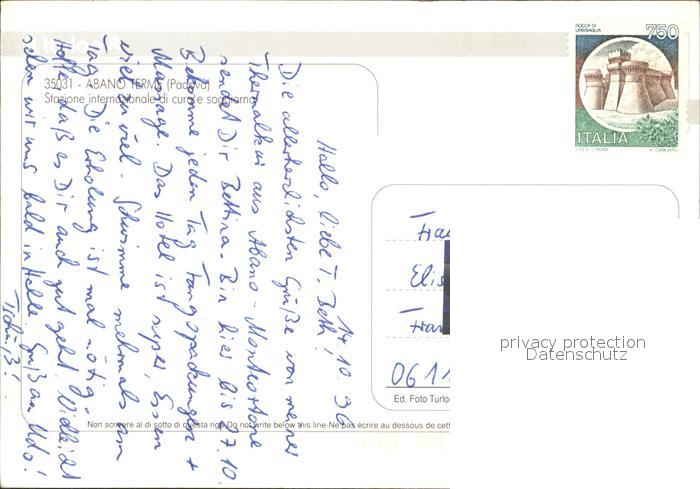 ROCCA DI
URBISAGLIA
750
ITALIA
I.P.Z.S. - ROMA
35031 - ABANO TERME (Padova)
Stazione internazionale di cura e soggiorno
14.10.96
Hallo, liebe T. Beth!
Die allerherzlichsten Grüße von meiner
Thermalkur aus Abano-Montegrotto
sendet Dir Bettina. Bin hier bis 27.10.
Bekomme jeden Tag Fangopackungen +
Massage. Das Hotel ist super, Essen
viel zu viel. Schwimme mehrmals am
Tag. Die Erholung ist mal nötig.
Hoffe, daß es Dir auch gut geht. Vielleicht
sehen wir uns bald in Halle. Gruß an Udo!
Tschüß!
Elis
0611
Ed. Foto Turlo
Non scrivere al di sotto di questa riga Do not write below this line-Ne pas écrire au dessous de cett
privacy protection
Datenschutz